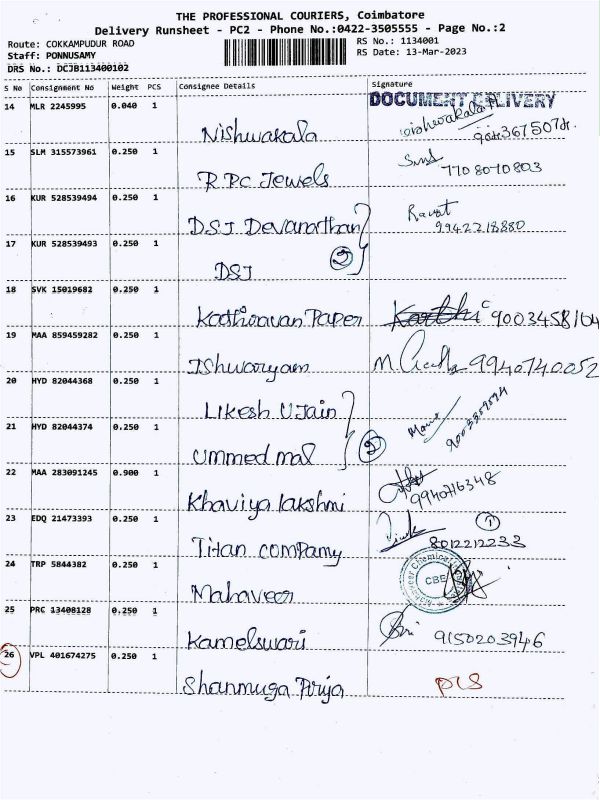 THE PROFESSIONAL COURIERS, Coimbatore
Delivery Runsheet - PC2 - Phone No.:0422-3505555 - Page No.:2
Route: COKKAMPUDUR ROAD
RS No.: 1134001
Staff: PONNUSAMY
RS Date: 13-Mar-2023
DRS No.: DCJB113400102
S No Consignment No Weight PCS Consignee Details Signature
DOCUMENT DELIVERY
14 MLR 2245995 0.040 1
Nishwakala
15 SLM 315573961 0.250 1
R.P.C Jewels 7708070803
16 KUR 528539494 0.250 1
DSJ Devanathan 9942218880
17 KUR 528539493 0.250 1
DSJ 2
18 SVK 15019682 0.250 1
Kathiravan Paper Karthi 9003458164
19 MAA 859459282 0.250 1
Ishwaryam 9940740052
20 HYD 82044368 0.250 1
Likesh U Jain
21 HYD 82044374 0.250 1
Ummed mal 2
22 MAA 283091245 0.900 1
Khaviya lakshmi
23 EDQ 21473393 0.250 1
Titan company 8012212233 1
24 TRP 5844382 0.250 1
Mahaveer CBE
25 PRC 13408128 0.250 1
Kamelswari 9150203946
26 VPL 401674275 0.250 1
Shanmuga Priya